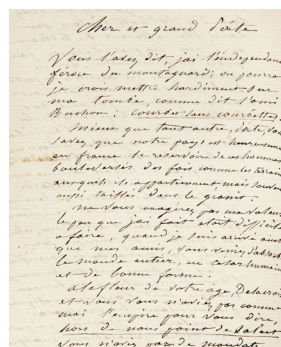 Cher et grand Poète
Vous l'avez dit, j'ai l'indépendance
féroce du montagnard; on pourra
je crois mettre hardiment sur
ma tombe, comme dit l'ami
Buchon: Courbet sans courbettes.
Mieux que tout autre, Poète, vous
savez que notre pays est heureusement
en france le réservoir de ces hommes
bouleversés des fois comme les terrains
auxquels ils appartiennent mais souvent
aussi taillés dans le granit.
ne vous exagérez pas ma valeur
le peu que j'ai fait était difficile
a faire. quand je suis arrivé ainsi
que mes amis, vous veniez d'absorber
le monde entier, en césar humain
et de bonne forme.
a la fleur de votre age Delacroix
et vous vous n'aviez pas comme
moi l'empire pour vous dire,
hors de nous point de salut
vous n'aviez pas de mandats